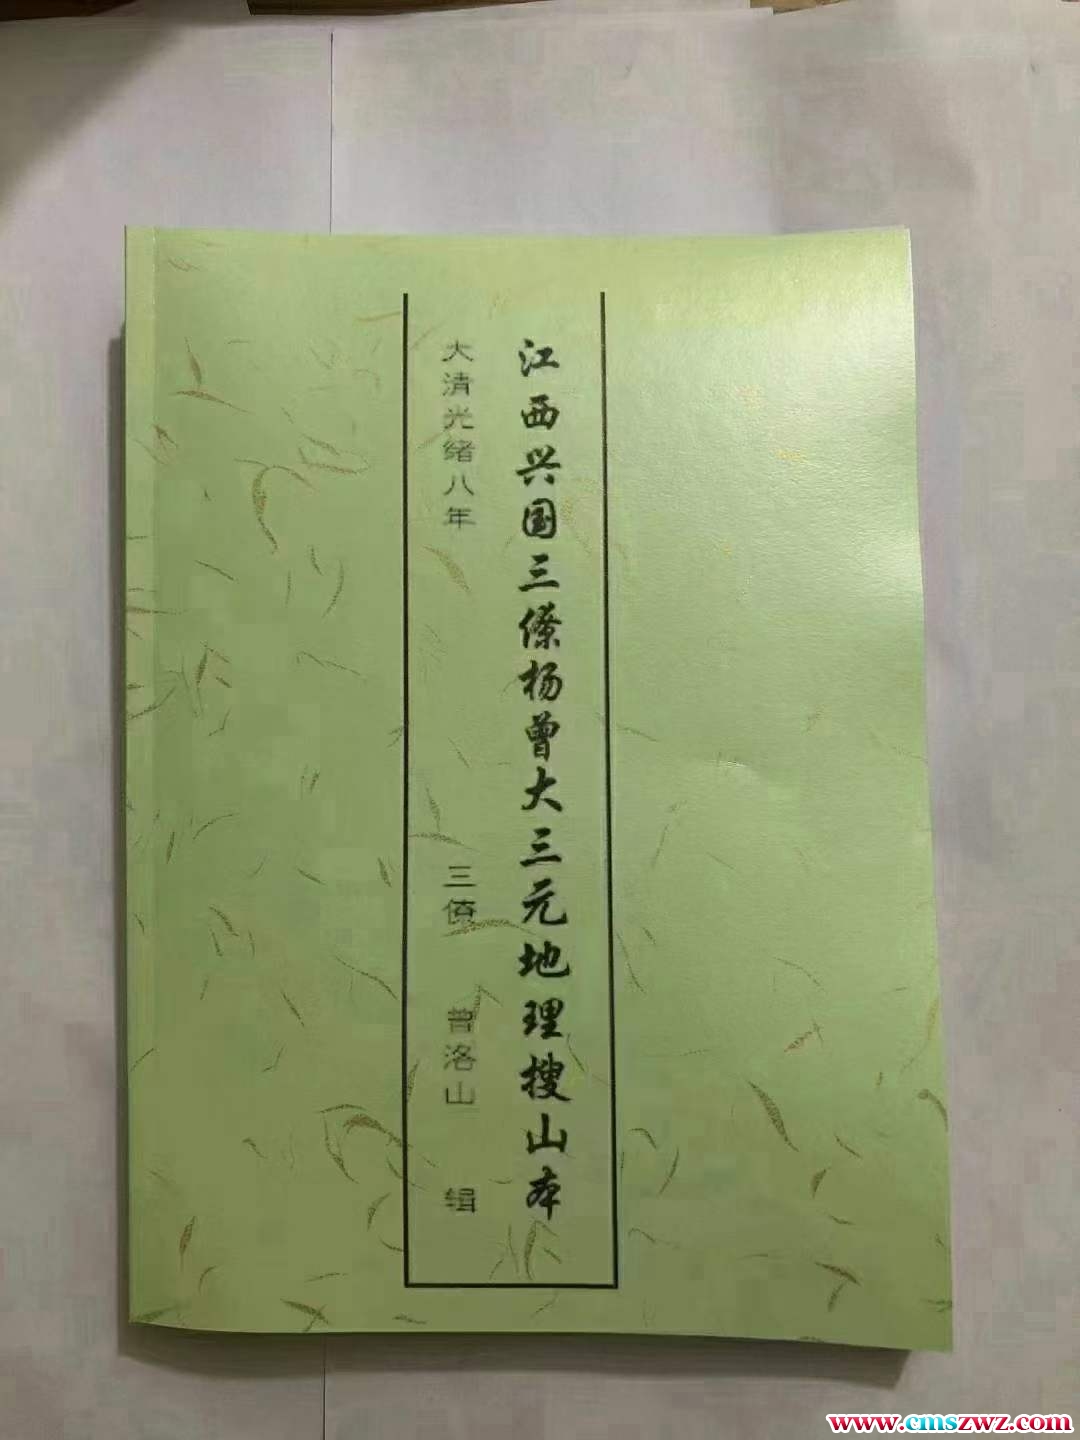 江西兴国三僚杨曾大三元地理搜山本
大清光绪八年 三僚 曾洛山 辑
www.cmszwz.com